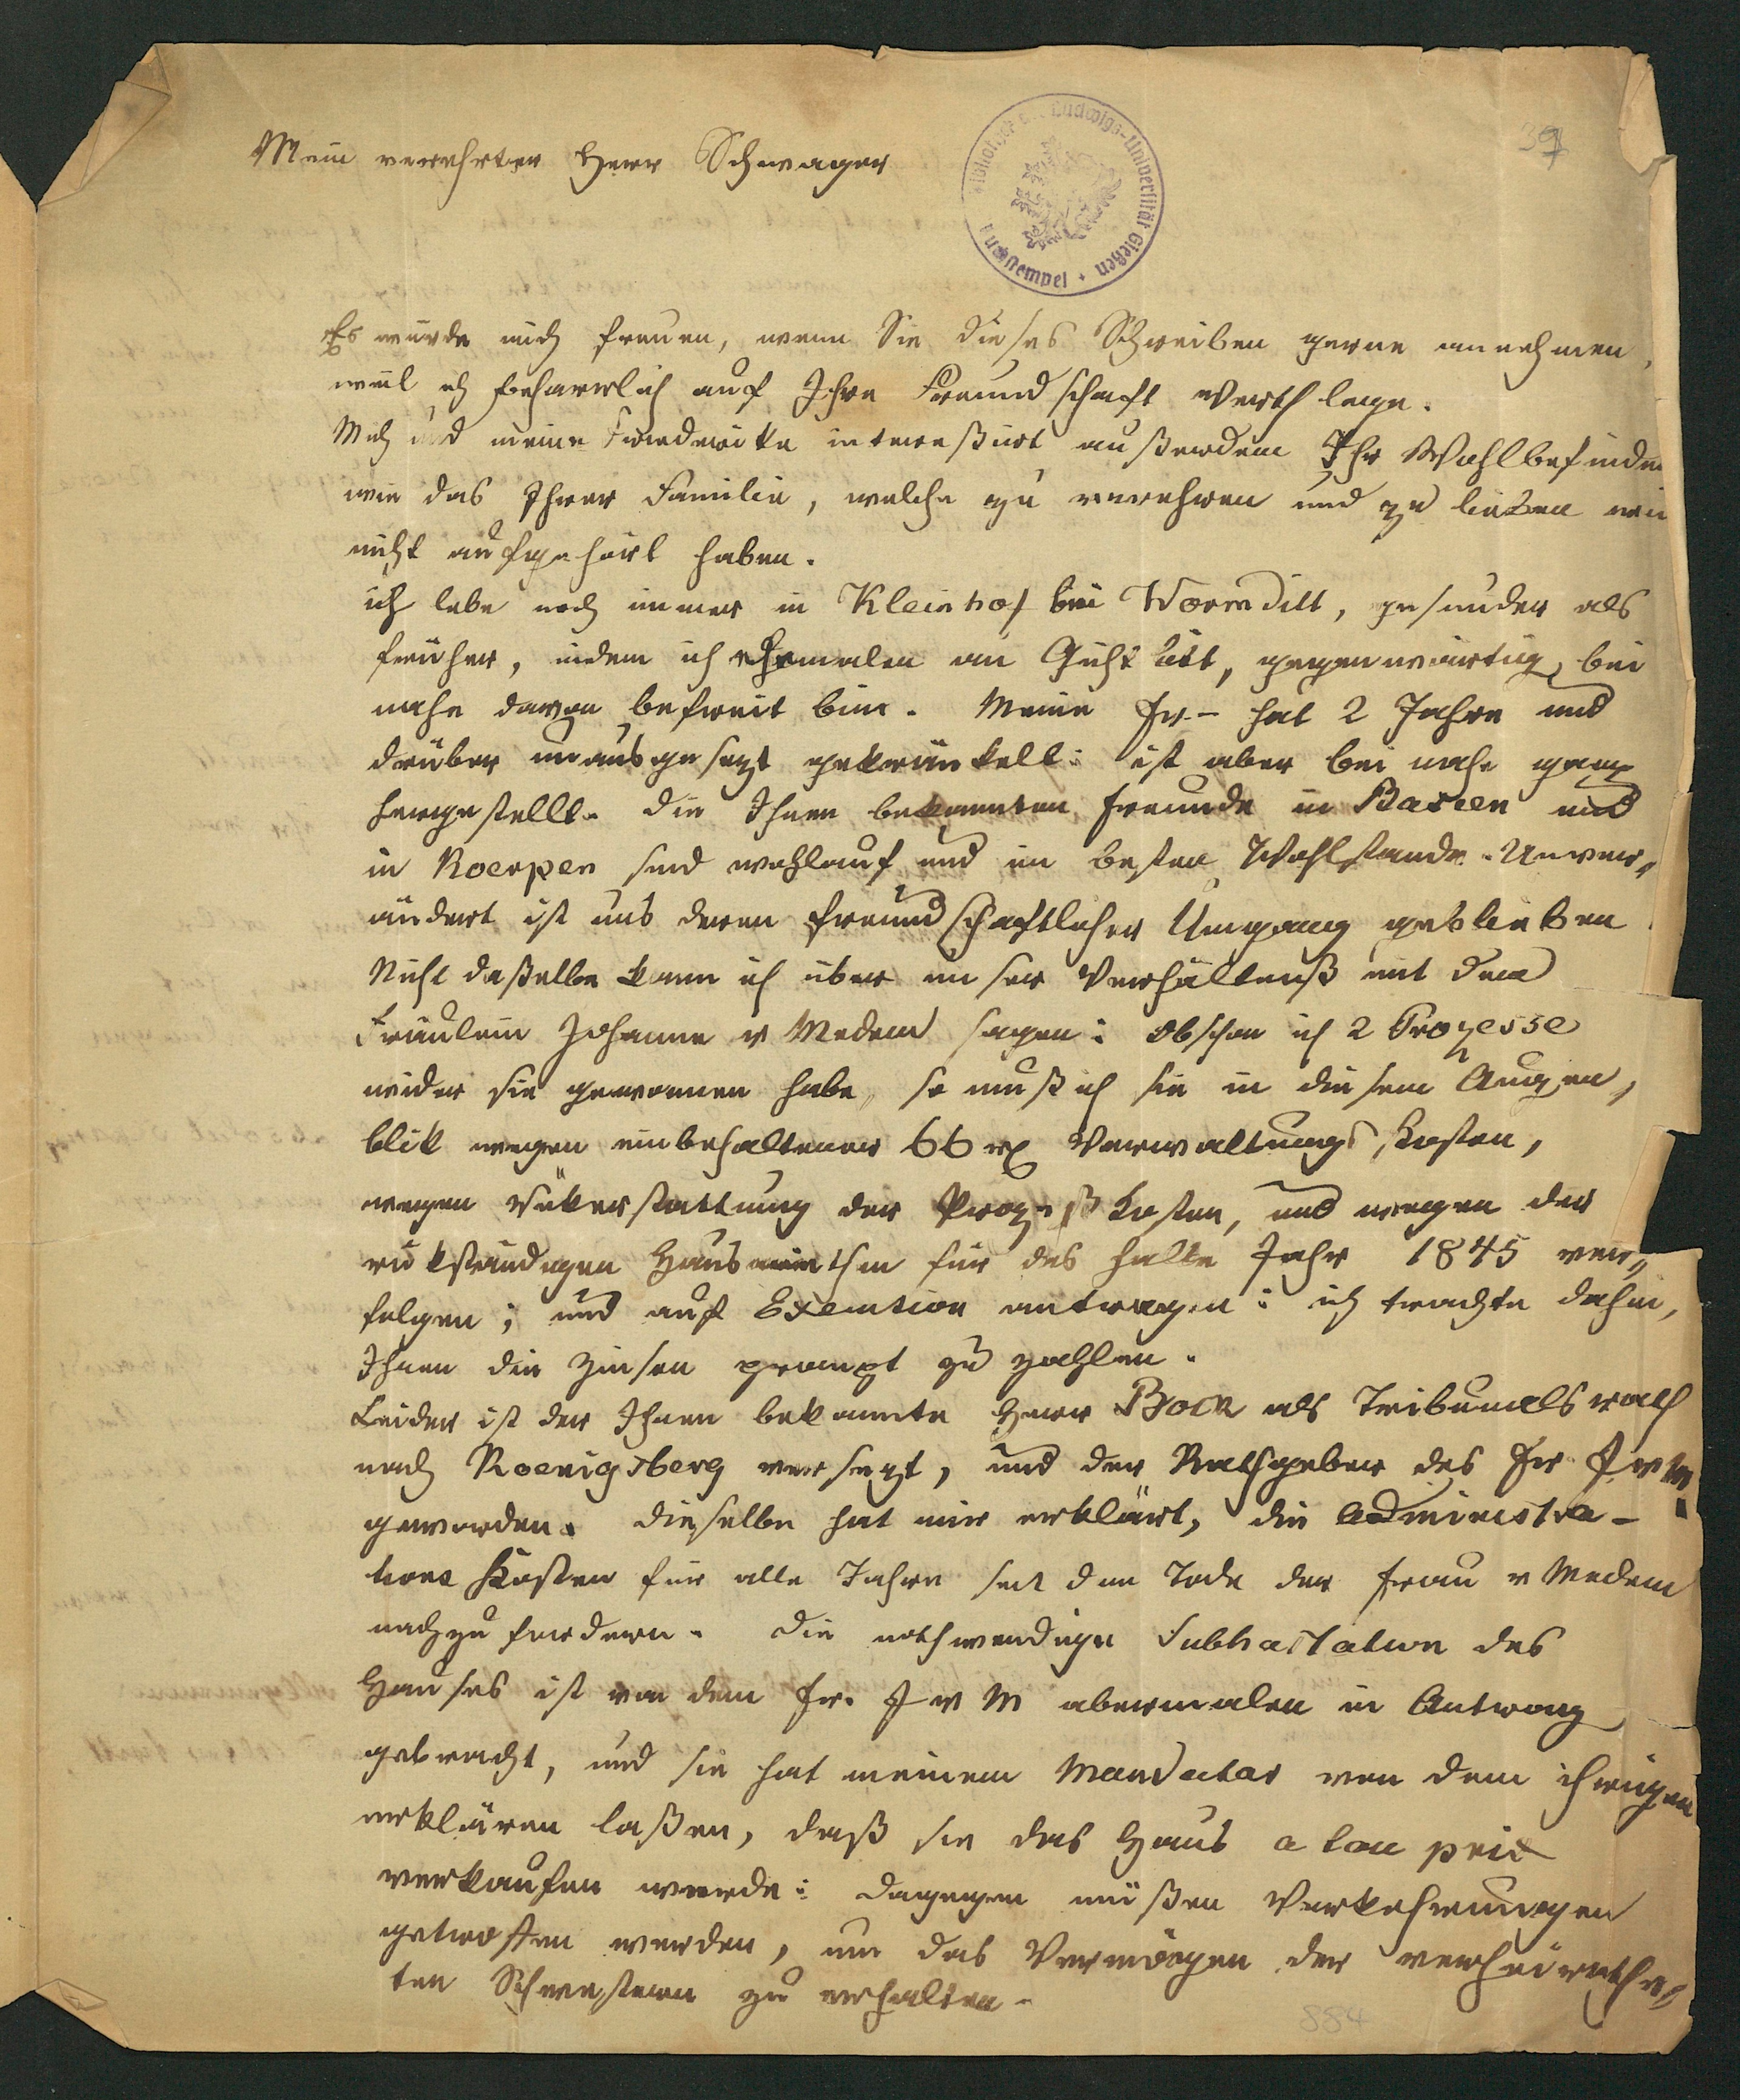 39
Mein verehrter Herr Schwager
Bibliothek der Ludwigs-Universität Gießen + Buchstempel
Es würde mich freuen, wenn Sie dieses Schreiben gerne annehmen,
weil ich beharrlich auf Ihre Freundschaft Werth lege.
Mich und meine Friederike interessirt außerdem Ihr Wohlbefinden
wie das Ihrer Familie, welche zu verehren und zu lieben wir
nicht aufgehört haben.
ich lebe noch immer in Kleinhof bei Wormditt, gesunder als
früher, indem ich ehemalen an Gicht litt, gegenwärtig bei
nahe davon befreit bin. Meine Fr. hat 2 Jahre und
drüber unausgesezt gekränkelt: ist aber bei nahe ganz
hergestellt. die Ihnen bekannten Freunde in Basien und
in Koerpen sind wohlauf und im besten Wohlstande. Unver„
ändert ist uns deren freundschaftlicher Umgang geblieben.
Nicht daßelbe kann ich über unser Verhältniß mit dem
Fräulein Johanna v Medem sagen: obschon ich 2 Prozesse
wider sie gewonnen habe, so muß ich sie in diesem Augen„
blik wegen einbehaltener 66 rx Verwaltungs Kosten,
wegen Rükerstattung der Prozeß Kosten, und wegen der
rükständigen Hausmiethen für das halbe Jahr 1845 ver„
folgen; und auf Execution antragen: ich trachte dahin,
Ihnen die Zinsen prompt zu zahlen.
Leider ist der Ihnen bekannte Herr Bock als Tribunalsrath
nach Koenigsberg versezt, und der Rathgeber des Fr. J v M.
geworden. dieselbe hat mir erklärt, die Administra-
tions Kosten für alle Jahre seit dem Tode der Frau v Medem
nachzufordern. die nothwendige Subhastation des
Hauses ist von dem Fr. J v M abermalen in Antrag
gebracht, und sie hat meinem Mandatar von dem ihrigen
erklären laßen, daß sie das Haus a tou prix
verkaufen werde: dagegen müßen Vorkehrungen
getroffen werden, um das Vermögen der verheirathe„
ten Schwestern zu erhalten.
884